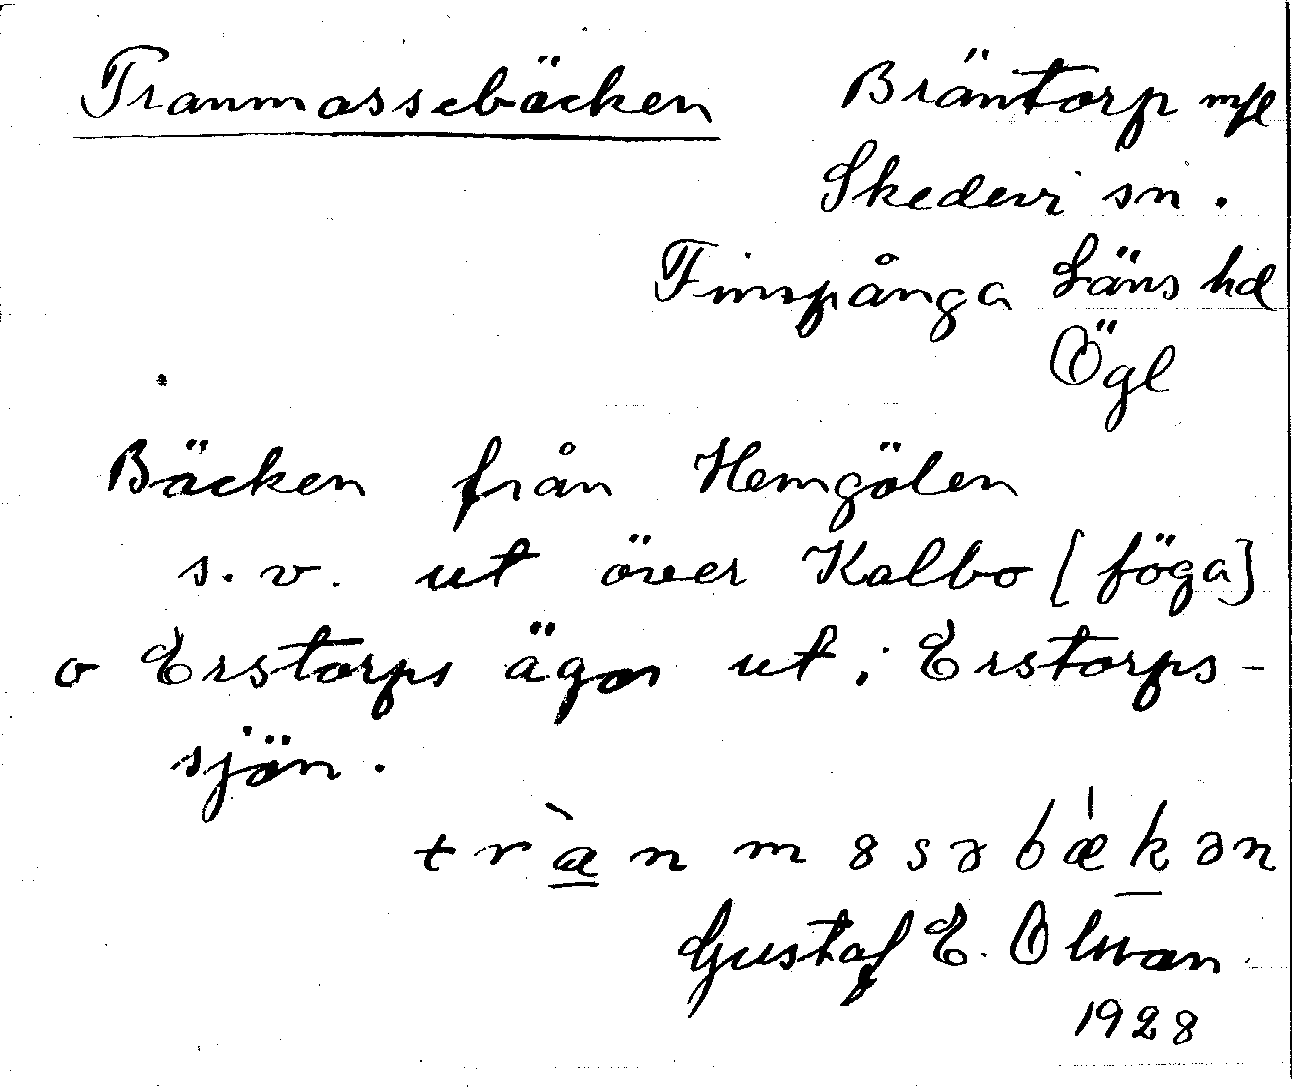 Tranmossebäcken Bräntorp mfl
Skedevi sn.
Finspånga Läns hd
Ögl
Bäcken från Hemgölen
s.v. ut över Kalbo [föga]
o Erstorps ägor ut i Erstorps-
sjön.
trànm8səbækən
Gustaf E. Olwan
1928